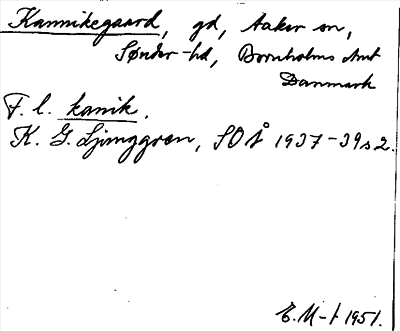 Kannikegaard, gd, Aaker sn,
Sønder-hd, Bornholms Amt
Danmark
F. l. kanik.
K. G. Ljunggren, SOÅ 1937-39 s 2.
E. M-t 1951.